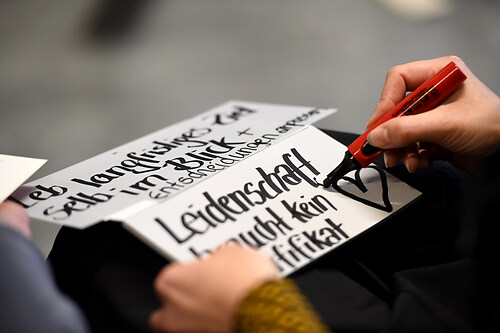 Leb langfristiges Ziel
selb im Blick +
Entscheidungen anpassen
Leidenschaft
braucht kein